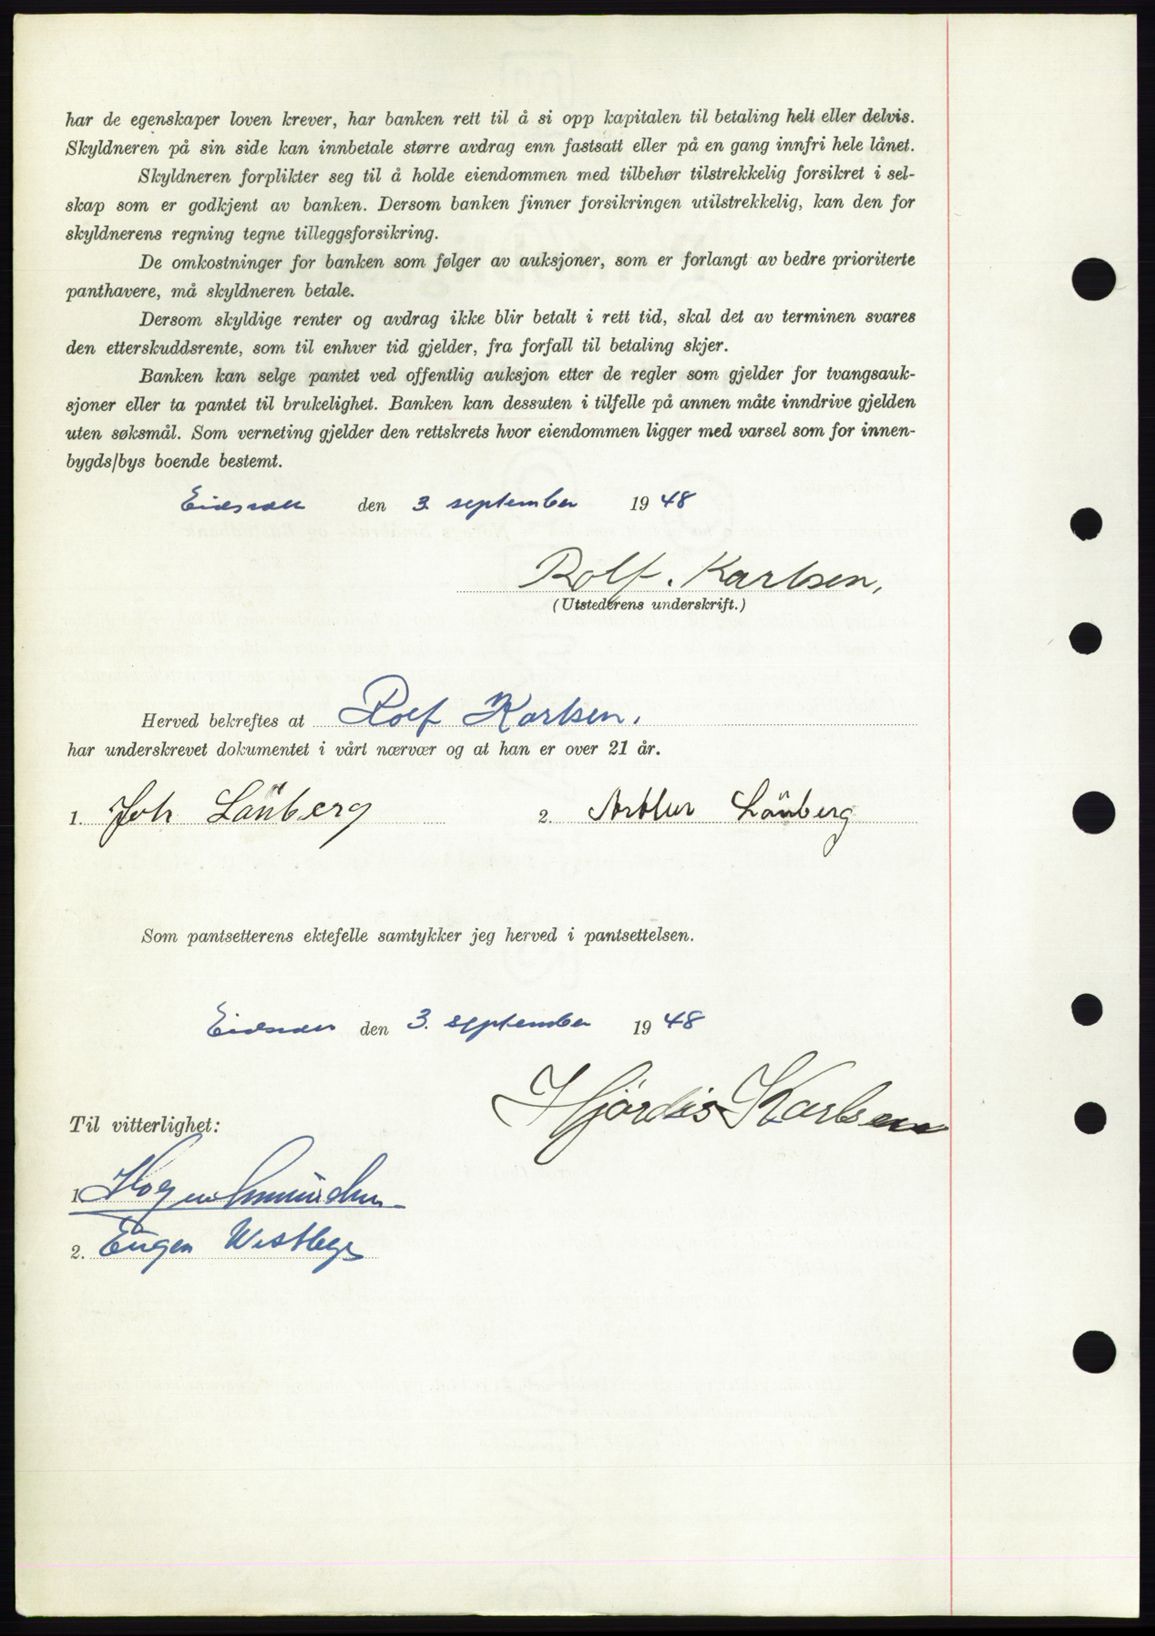 har de egenskaper loven krever, har banken rett til å si opp kapitalen til betaling helt eller delvis.
Skyldneren på sin side kan innbetale större avdrag enn fastsatt eller på en gang innfri hele lånet.
Skyldneren forplikter seg til å holde eiendommen med tilbehør tilstrekkelig forsikret i sel-
skap som er godkjent av banken. Dersom banken finner forsikringen utilstrekkelig, kan den for
skyldnerens regning tegne tilleggsforsikring.
De omkostninger for banken som følger av auksjoner, som er forlangt av bedre prioriterte
panthavere, må skyldneren betale.
Dersom skyldige renter og avdrag ikke blir betalt i rett tid, skal det av terminen svares
den etterskuddsrente, som til enhver tid gjelder, fra forfall til betaling skjer.
Banken kan selge pantet ved offentlig auksjon etter de regler som gjelder for tvangsauk-
sjoner eller ta pantet til brukelighet. Banken kan dessuten i tilfelle på annen måte inndrive gjelden
uten søksmål. Som verneting gjelder den rettskrets hvor eiendommen ligger med varsel som for innen-
bygds/bys boende bestemt.
den 3. september 1948
Rolf. Karlsen,
(Utstederens underskrift.)
Herved bekreftes at Rolf Karlsen,
har underskrevet dokumentet i vårt nærvær og at han er over 21 år.
1. Joh Länberg 2. Arthur Länberg
Som pantsetterens ektefelle samtykker jeg herved i pantsettelsen.
den 3. september 1948
Hjördis Karlsen
Til vitterlighet:
1.
2. Eugen